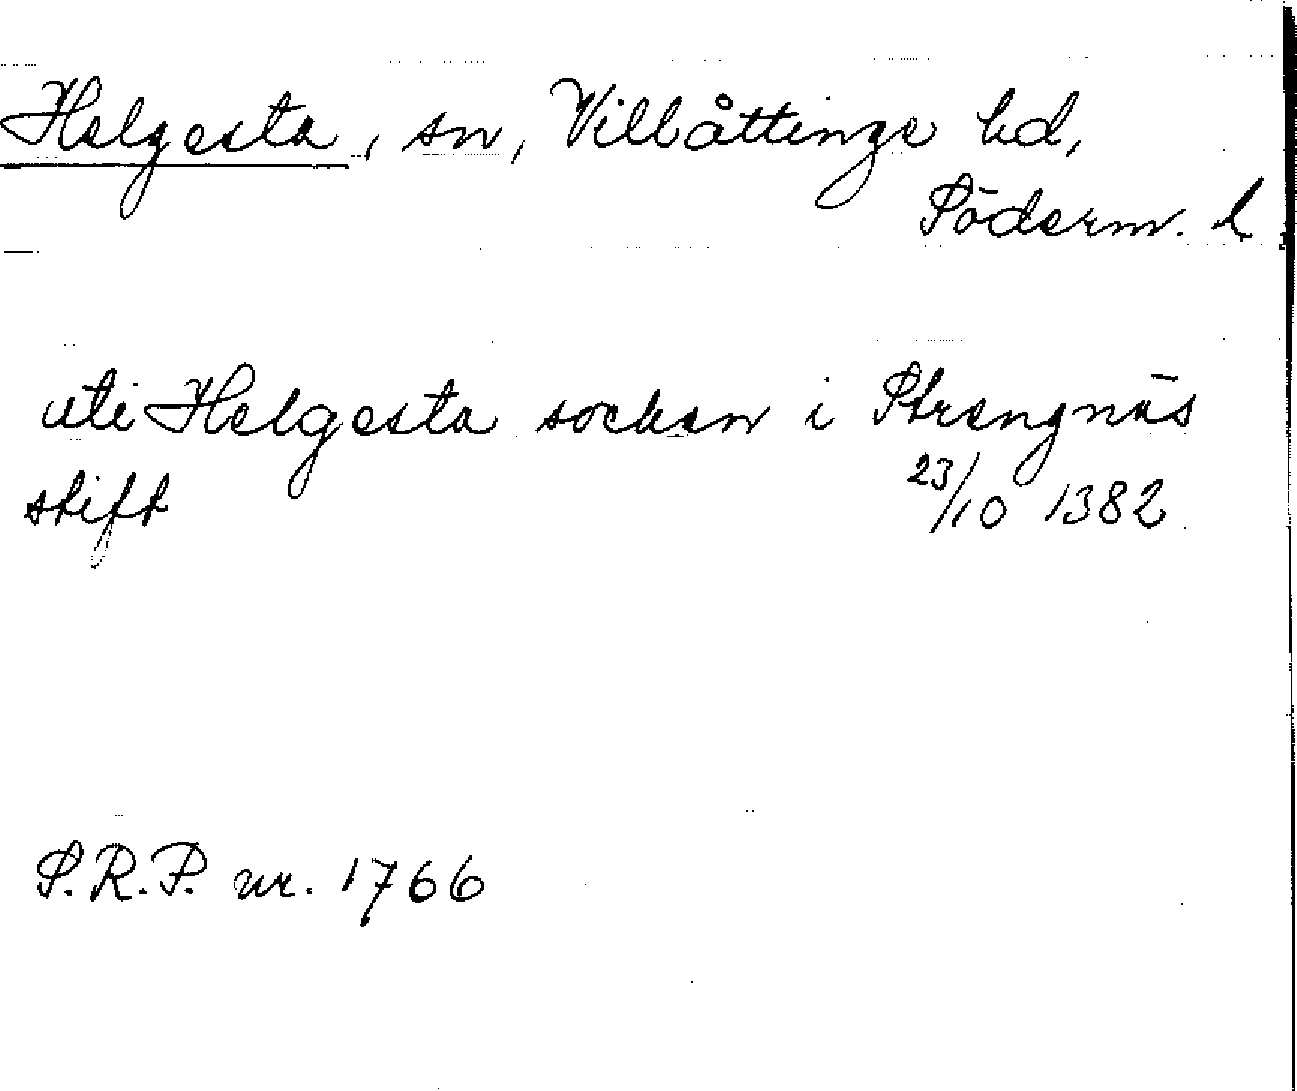 Helgesta, sn, Villåttinge hd,
Söderm. l
uti Helgesta socken i Strengnäs
stift 23/10 1382
S.R.P. nr. 1766